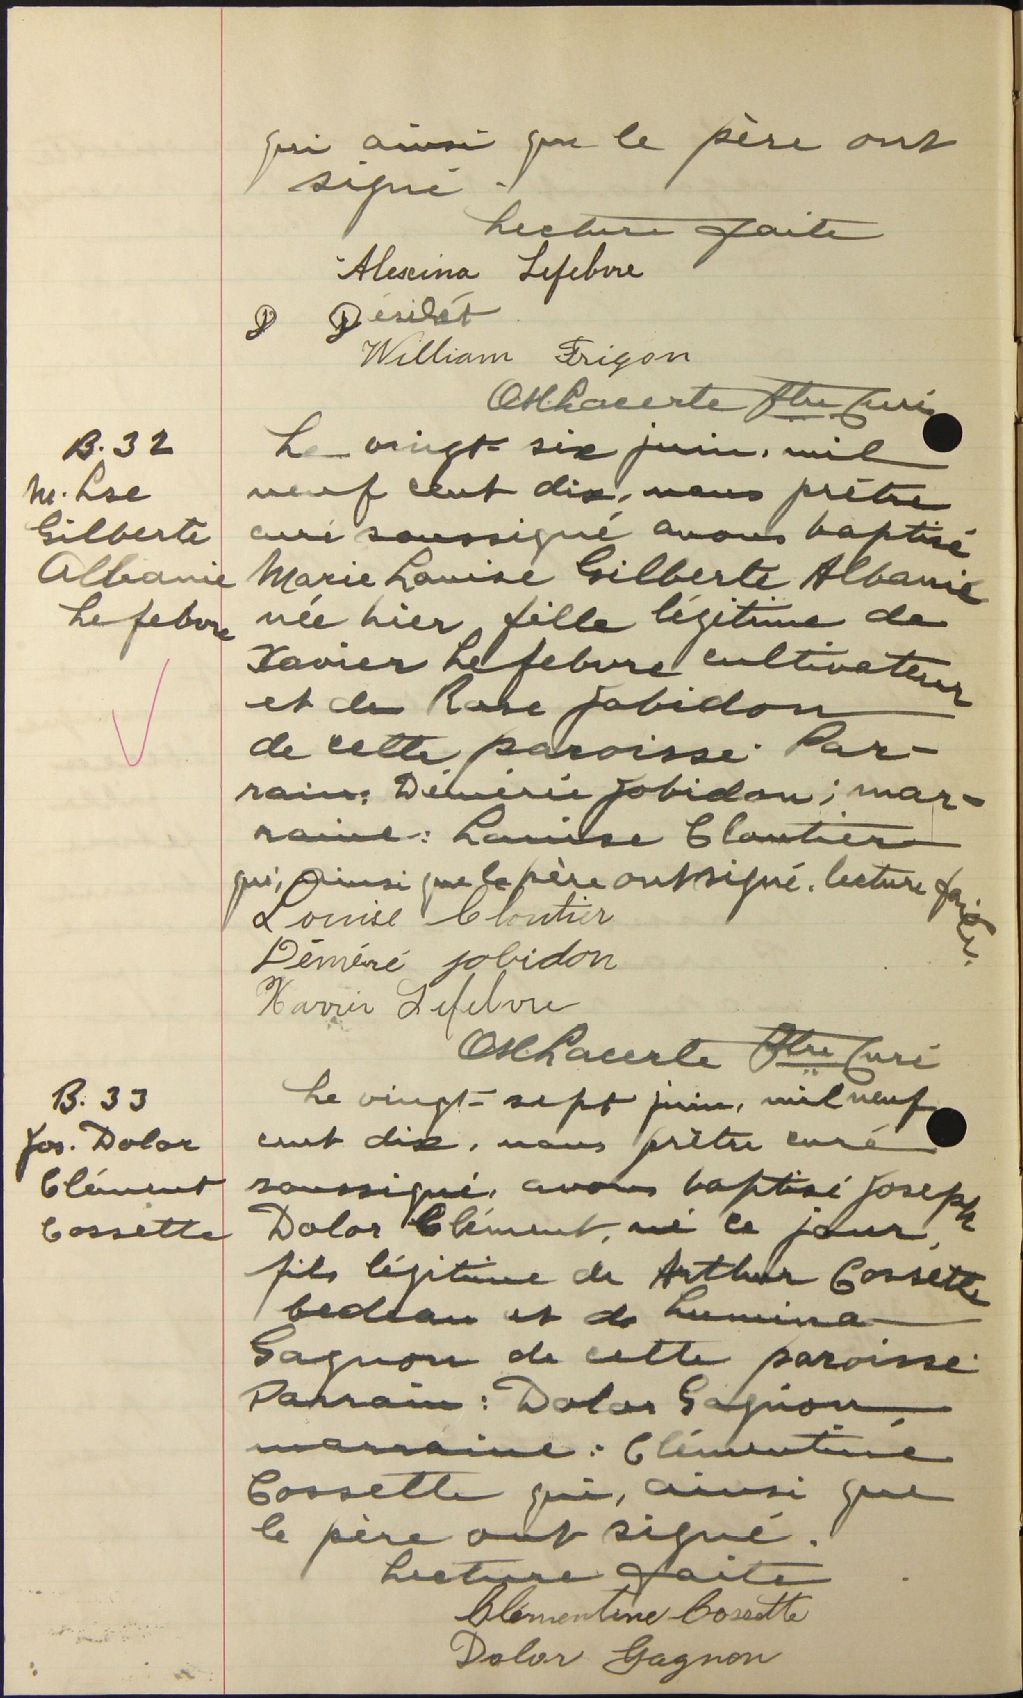 qui ainsi que le père ont
signé.
Lecture faite
Alexina Lefebvre
J Désilét
William Frigon
Ptre Curé
B. 32
M. Lse
Gilberte
Albanie
Lefebvre
Le vingt-six juin, mil
neuf cent dix, nous prêtre
curé soussigné avons baptisé
Marie Louise Gilberte Albanie
née hier, fille légitime de
Xavier Lefebvre cultivateur
et de Rose Jobidon
de cette paroisse. Par-
rain: Déméré Jobidon; mar-
raine: Louise Cloutier
qui, ainsi que le père ont signé. lecture faite.
Louise Cloutier
Déméré Jobidon
Xavier Lefebvre
Ptre Curé
B. 33
Jos. Dolor
Clément
Cossette
Le vingt-sept juin, mil neuf
cent dix, nous prêtre curé
soussigné, avons baptisé Joseph
Dolor Clément, né ce jour,
fils légitime de Arthur Cossette
bedeau et de Lumina
Gagnon de cette paroisse.
Parrain: Dolor Gagnon
marraine: Clémentine
Cossette qui, ainsi que
le père ont signé.
Lecture faite
Clémentine Cossette
Dolor Gagnon